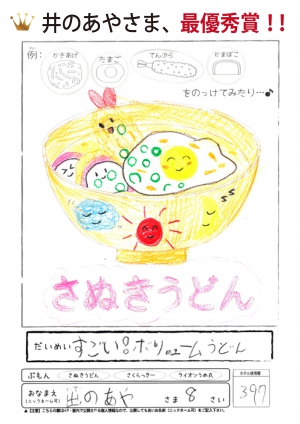 井のあやさま、最優秀賞!!
例:
かきあげ たまご てんぷら かまぼこ
をのっけてみたり…♪
さぬきうどん
だいめい すごい。ボリュームうどん
ぶもん さぬきうどん さくらっきー ライオンうめ丸
おなまえ (ニックネーム可) 井のあや さま 8 さい
397